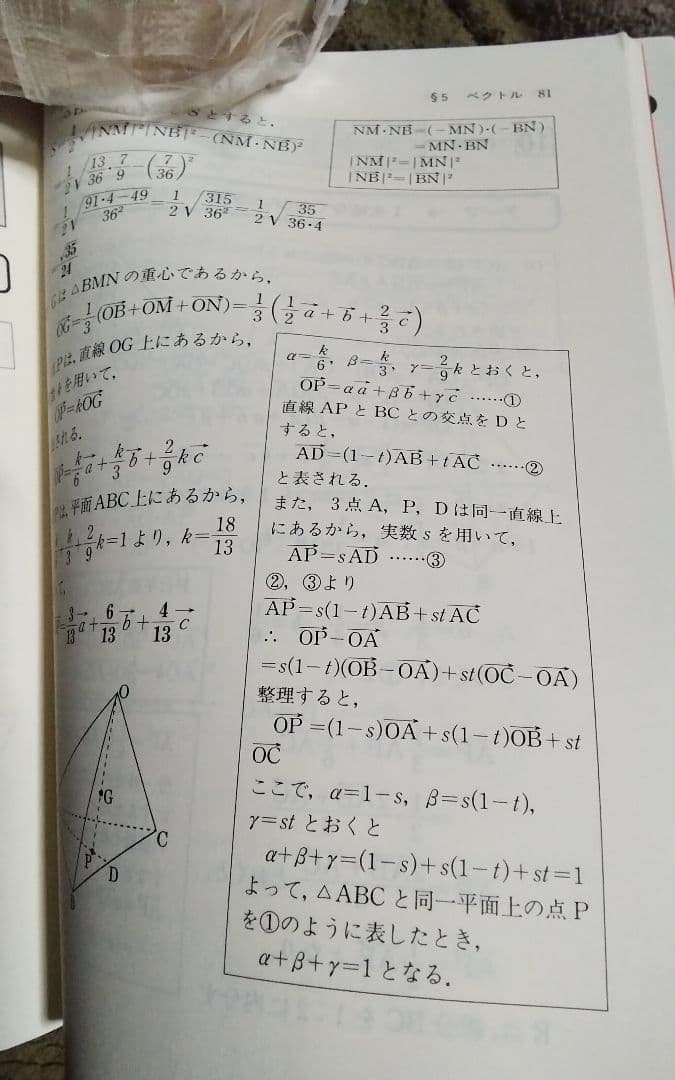 §5 ベクトル 81
S とすると，
$\frac{1}{2}\sqrt{|\overrightarrow{NM}|^2|\overrightarrow{NB}|^2-(\overrightarrow{NM}\cdot\overrightarrow{NB})^2}$
$=\frac{1}{2}\sqrt{\frac{13}{36}\cdot\frac{7}{9}-\left(\frac{7}{36}\right)^2}$
$=\frac{1}{2}\sqrt{\frac{91\cdot4-49}{36^2}}=\frac{1}{2}\sqrt{\frac{315}{36^2}}=\frac{1}{2}\sqrt{\frac{35}{36\cdot4}}$
$=\frac{\sqrt{35}}{24}$
$\overrightarrow{NM}\cdot\overrightarrow{NB}=(-\overrightarrow{MN})\cdot(-\overrightarrow{BN})$
$=\overrightarrow{MN}\cdot\overrightarrow{BN}$
$|\overrightarrow{NM}|^2=|\overrightarrow{MN}|^2$
$|\overrightarrow{NB}|^2=|\overrightarrow{BN}|^2$
Gは△BMNの重心であるから，
$\overrightarrow{OG}=\frac{1}{3}(\overrightarrow{OB}+\overrightarrow{OM}+\overrightarrow{ON})=\frac{1}{3}\left(\frac{1}{2}\vec{a}+\vec{b}+\frac{2}{3}\vec{c}\right)$
Pは，直線 OG 上にあるから，
kを用いて，
$\overrightarrow{OP}=k\overrightarrow{OG}$
される．
$\overrightarrow{OP}=\frac{k}{6}\vec{a}+\frac{k}{3}\vec{b}+\frac{2}{9}k\vec{c}$
Pは，平面ABC上にあるから，
$+\frac{k}{3}+\frac{2}{9}k=1$ より，$k=\frac{18}{13}$
て，
$=\frac{3}{13}\vec{a}+\frac{6}{13}\vec{b}+\frac{4}{13}\vec{c}$
O
G
C
P
D
$\alpha=\frac{k}{6}$，$\beta=\frac{k}{3}$，$\gamma=\frac{2}{9}k$ とおくと，
$\overrightarrow{OP}=\alpha\vec{a}+\beta\vec{b}+\gamma\vec{c}$ ……①
直線 AP と BC との交点を D と
すると，
$\overrightarrow{AD}=(1-t)\overrightarrow{AB}+t\overrightarrow{AC}$ ……②
と表される．
また，3点 A，P，D は同一直線上
にあるから，実数 s を用いて，
$\overrightarrow{AP}=s\overrightarrow{AD}$ ……③
②，③より
$\overrightarrow{AP}=s(1-t)\overrightarrow{AB}+st\overrightarrow{AC}$
∴ $\overrightarrow{OP}-\overrightarrow{OA}$
$=s(1-t)(\overrightarrow{OB}-\overrightarrow{OA})+st(\overrightarrow{OC}-\overrightarrow{OA})$
整理すると，
$\overrightarrow{OP}=(1-s)\overrightarrow{OA}+s(1-t)\overrightarrow{OB}+st$
$\overrightarrow{OC}$
ここで，$\alpha=1-s$，$\beta=s(1-t)$，
$\gamma=st$ とおくと
$\alpha+\beta+\gamma=(1-s)+s(1-t)+st=1$
よって，△ABC と同一平面上の点 P
を①のように表したとき，
$\alpha+\beta+\gamma=1$ となる．